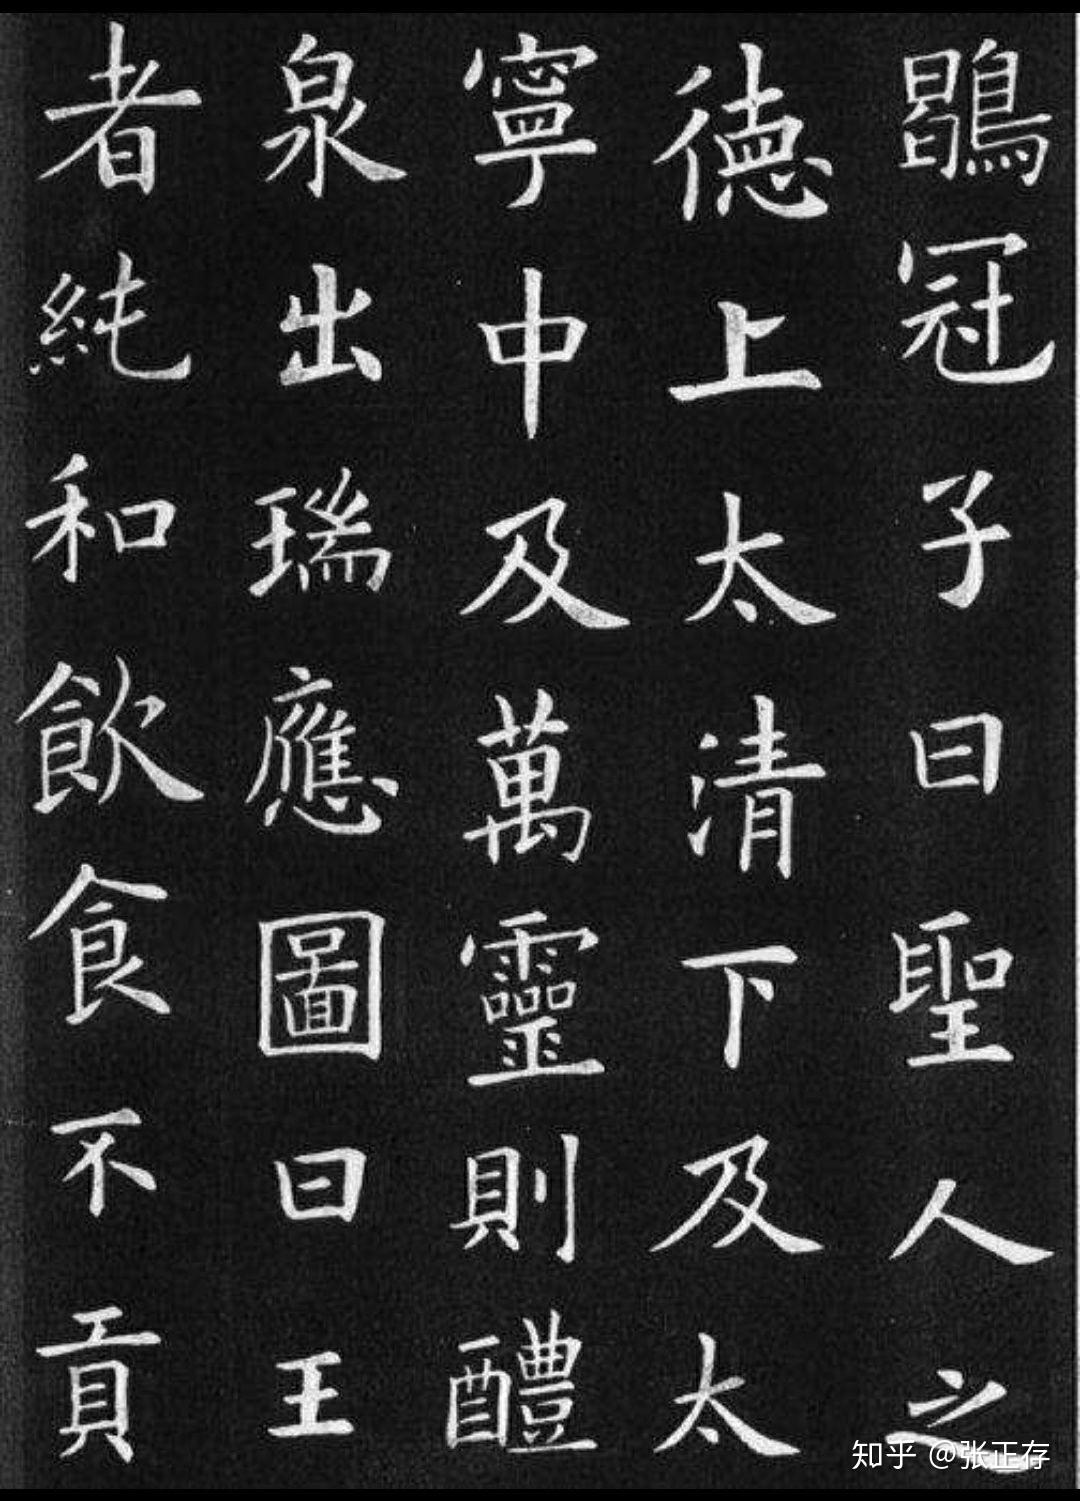 鶡冠子曰聖人之
德上太清下及太
寧中及萬靈則醴
泉出瑞應圖曰王
者純和飲食不貢
知乎 @张正存